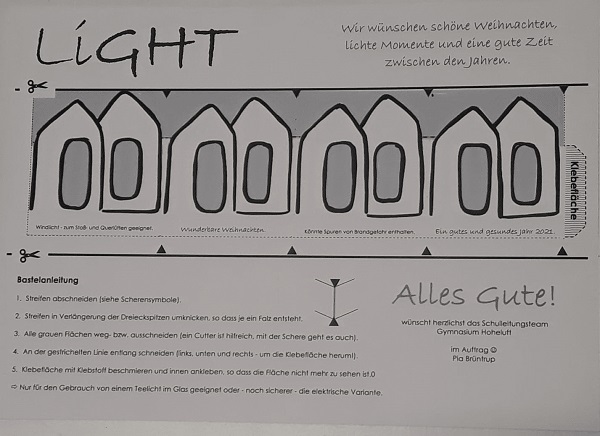 LiGHT
Wir wünschen schöne Weihnachten,
lichte Momente und eine gute Zeit
zwischen den Jahren.
Klebefläche
Windlicht - zum Stoß- und Querlüften geeignet.
Wunderbare Weihnachten.
Könnte Spuren von Brandgefahr enthalten.
Ein gutes und gesundes Jahr 2021.
Bastelanleitung
1. Streifen abschneiden (siehe Scherensymbole).
2. Streifen in Verlängerung der Dreieckspitzen umknicken, so dass je ein Falz entsteht.
3. Alle grauen Flächen weg- bzw. ausschneiden (ein Cutter ist hilfreich, mit der Schere geht es auch).
4. An der gestrichelten Linie entlang schneiden (links, unten und rechts - um die Klebefläche herum!).
5. Klebefläche mit Klebstoff beschmieren und innen ankleben, so dass die Fläche nicht mehr zu sehen ist.
⇨ Nur für den Gebrauch von einem Teelicht im Glas geeignet oder - noch sicherer - die elektrische Variante.
Alles Gute!
wünscht herzlichst das Schulleitungsteam
Gymnasium Hoheluft
im Auftrag ☺
Pia Brüntrup